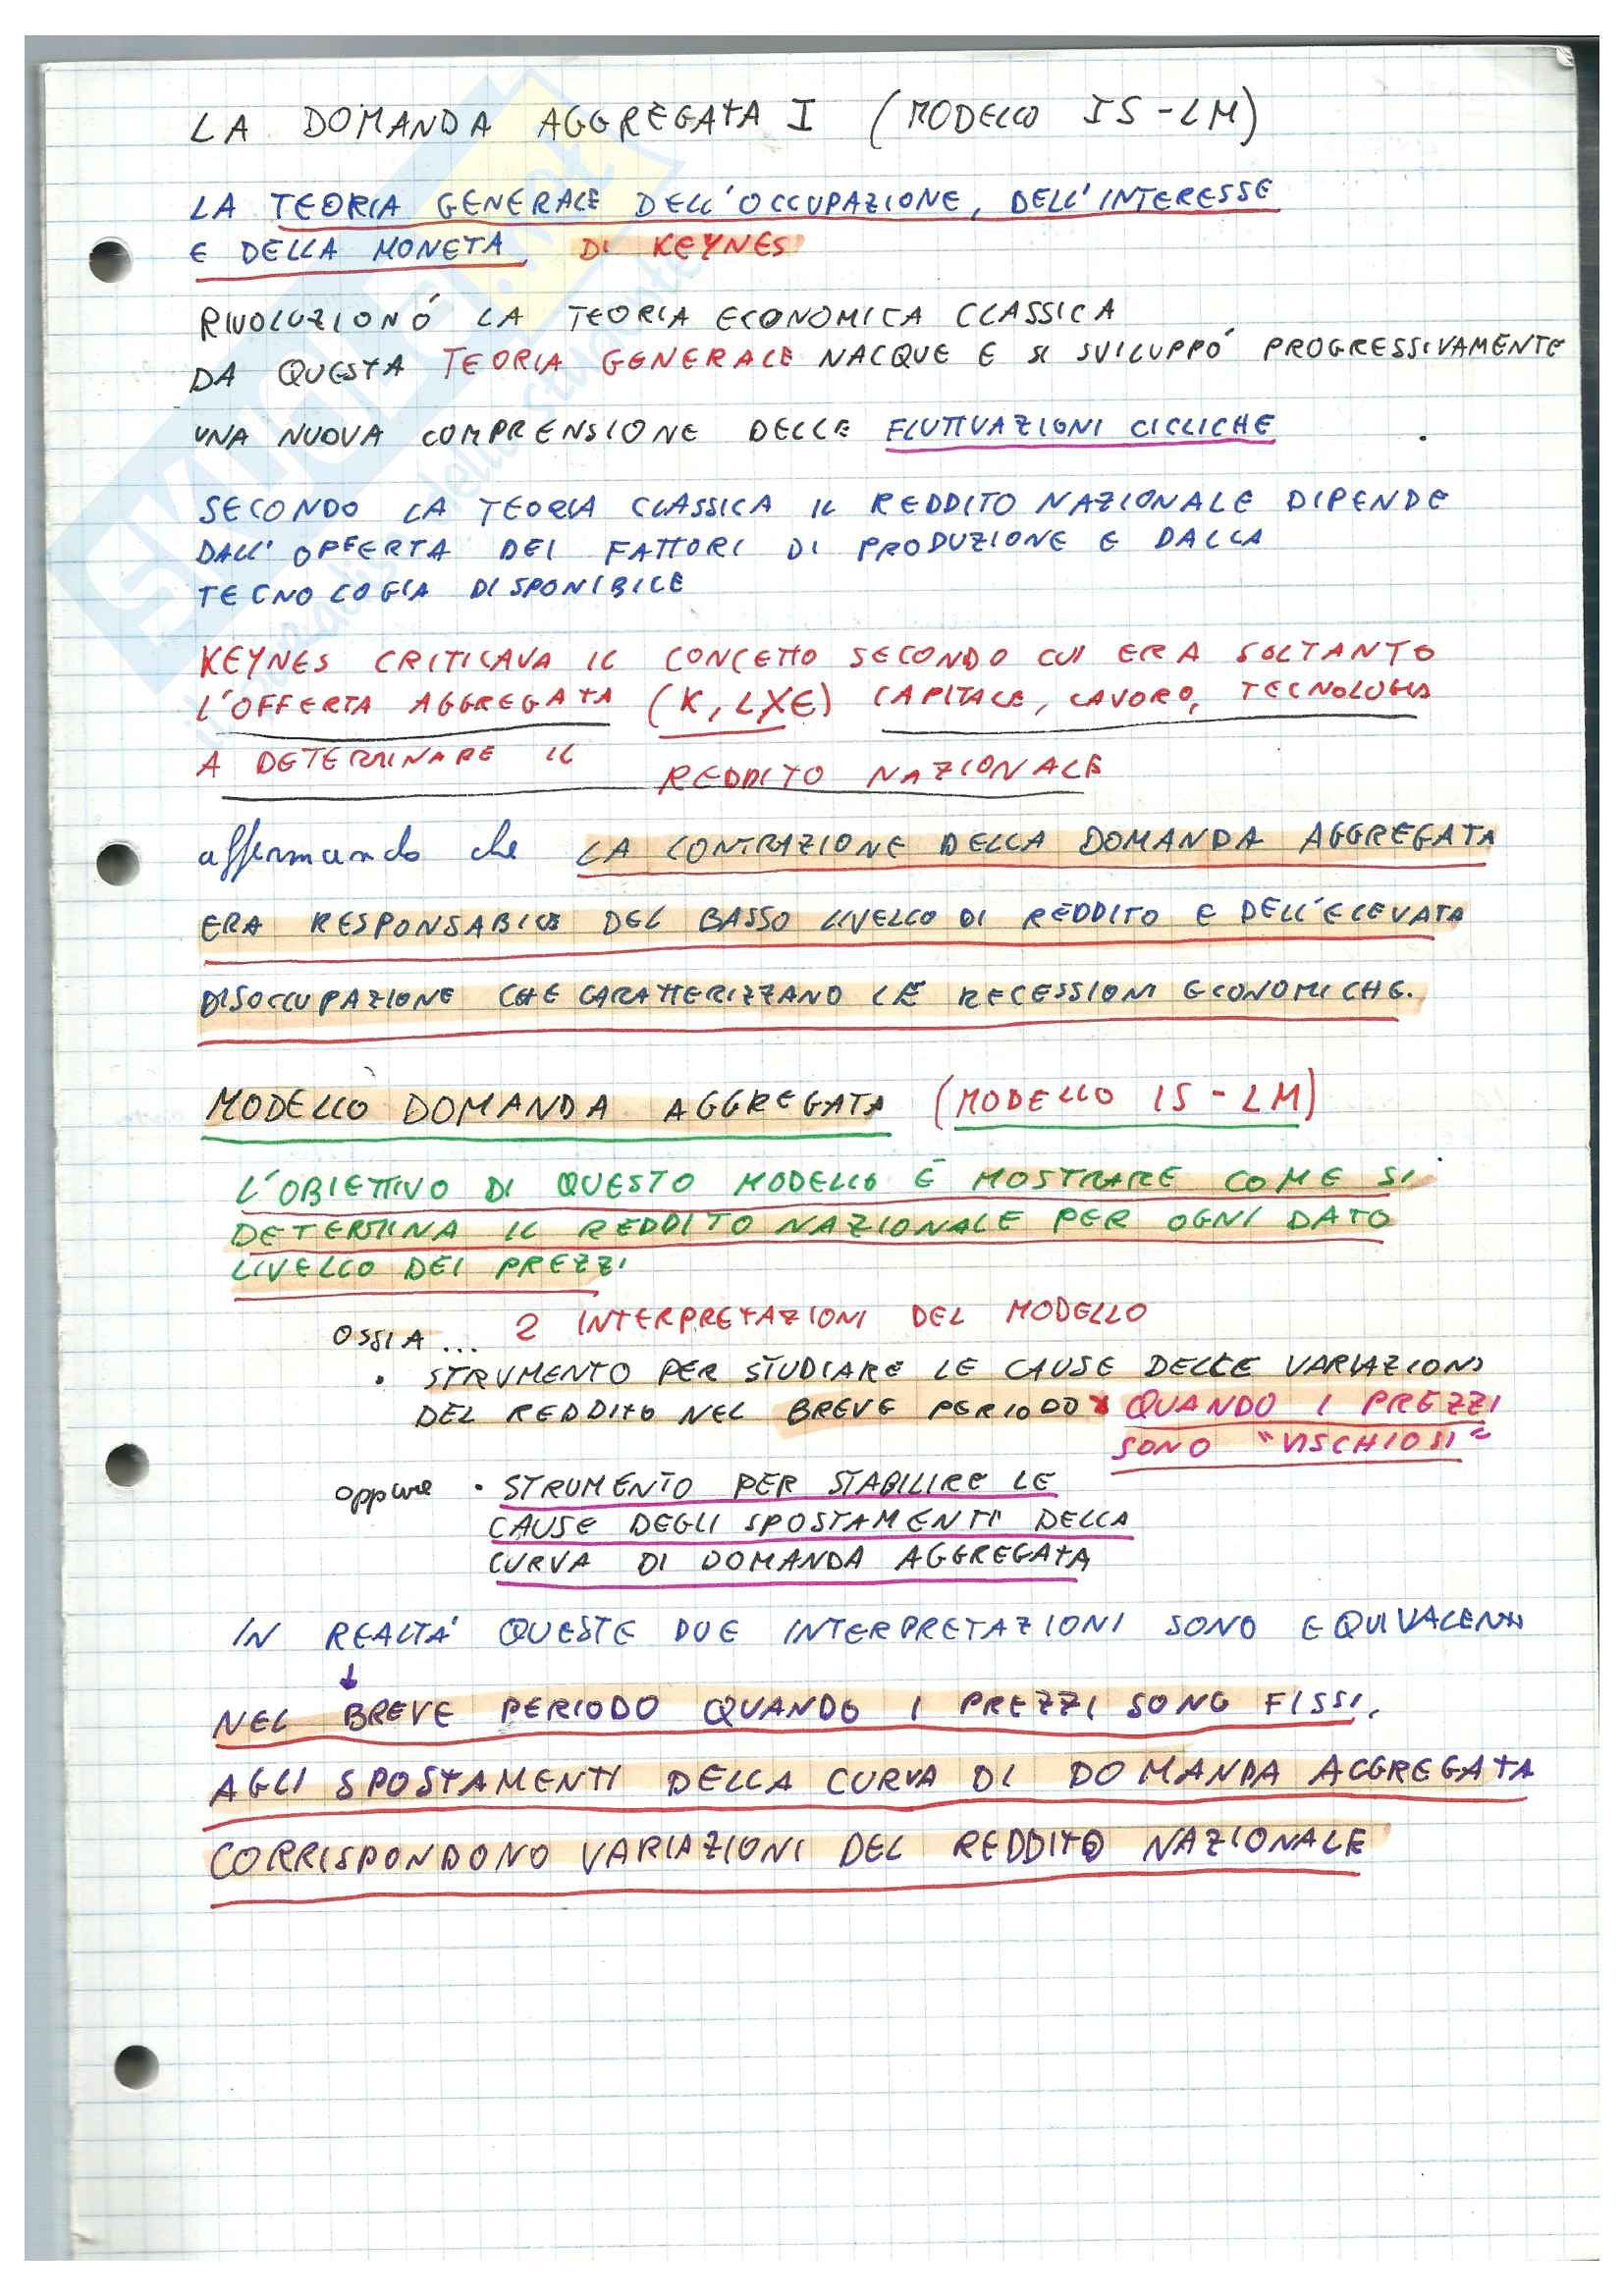 LA DOMANDA AGGREGATA I (MODELLO IS-LM)
LA TEORIA GENERALE DELL'OCCUPAZIONE, DELL'INTERESSE
E DELLA MONETA DI KEYNES
RIVOLUZIONÓ LA TEORIA ECONOMICA CLASSICA
DA QUESTA TEORIA GENERALE NACQUE E SI SVILUPPÓ PROGRESSIVAMENTE
UNA NUOVA COMPRENSIONE DELLE FLUTTUAZIONI CICLICHE
SECONDO LA TEORIA CLASSICA IL REDDITO NAZIONALE DIPENDE
DALL'OFFERTA DEI FATTORI DI PRODUZIONE E DALLA
TECNOLOGIA DISPONIBILE
KEYNES CRITICAVA IL CONCETTO SECONDO CUI ERA SOLTANTO
L'OFFERTA AGGREGATA (K, LXE) CAPITALE, LAVORO, TECNOLOGIA
A DETERMINARE IL REDDITO NAZIONALE
affermando che LA CONTRAZIONE DELLA DOMANDA AGGREGATA
ERA RESPONSABILE DEL BASSO LIVELLO DI REDDITO E DELL'ELEVATA
DISOCCUPAZIONE CHE CARATTERIZZANO LE RECESSIONI ECONOMICHE.
MODELLO DOMANDA AGGREGATA (MODELLO IS-LM)
L'OBIETTIVO DI QUESTO MODELLO É MOSTRARE COME SI
DETERMINA IL REDDITO NAZIONALE PER OGNI DATO
LIVELLO DEI PREZZI
OSSIA... 2 INTERPRETAZIONI DEL MODELLO
• STRUMENTO PER STUDIARE LE CAUSE DELLE VARIAZIONI
DEL REDDITO NEL BREVE PERIODO QUANDO I PREZZI
SONO "VISCHIOSI"
oppure • STRUMENTO PER STABILIRE LE
CAUSE DEGLI SPOSTAMENTI DELLA
CURVA DI DOMANDA AGGREGATA
IN REALTA' QUESTE DUE INTERPRETAZIONI SONO EQUIVALENTI
↓
NEL BREVE PERIODO QUANDO I PREZZI SONO FISSI,
AGLI SPOSTAMENTI DELLA CURVA DI DOMANDA AGGREGATA
CORRISPONDONO VARIAZIONI DEL REDDITO NAZIONALE